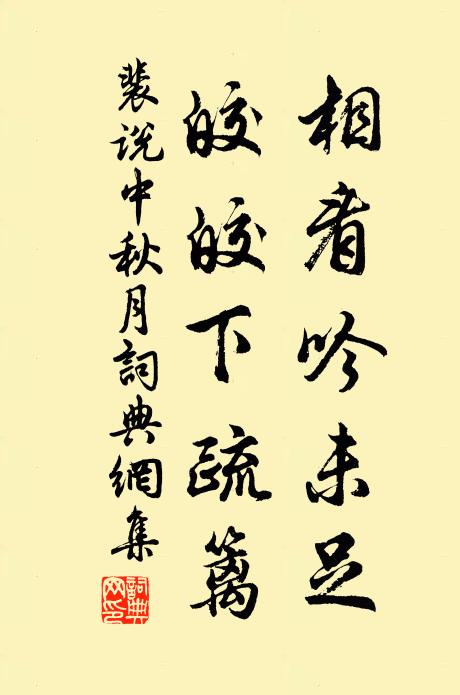 相看吟未足
皎皎下疏篱
裴说中秋月詞典網集
詞典网印